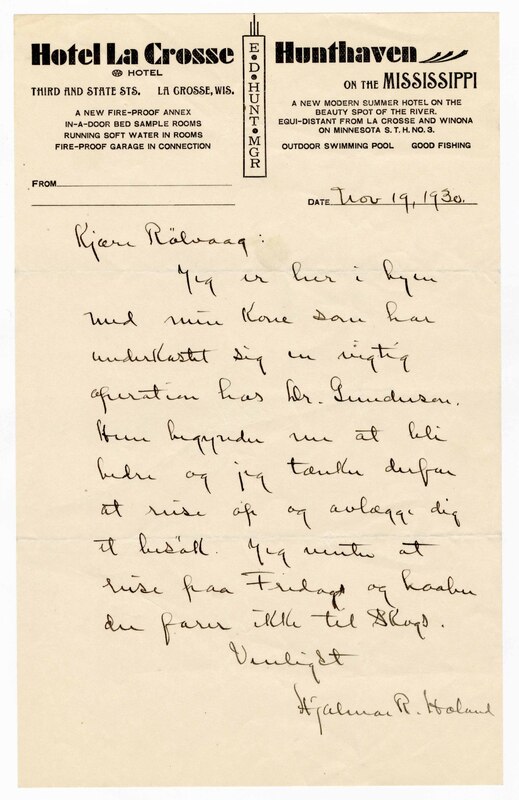 Hotel La Crosse
HOTEL
THIRD AND STATE STS. LA CROSSE, WIS.
A NEW FIRE-PROOF ANNEX
IN-A-DOOR BED SAMPLE ROOMS
RUNNING SOFT WATER IN ROOMS
FIRE-PROOF GARAGE IN CONNECTION
E•D•HUNT•MGR
Hunthaven
ON THE MISSISSIPPI
A NEW MODERN SUMMER HOTEL ON THE
BEAUTY SPOT OF THE RIVER.
EQUI-DISTANT FROM LA CROSSE AND WINONA
ON MINNESOTA S. T. H. NO. 3.
OUTDOOR SWIMMING POOL GOOD FISHING
FROM
DATE Nov 19, 1930.
Kjære Rölvaag:
Jeg er her i byen
med min Kone som har
underkastet sig en vigtig
operation hos Dr. Gundersen.
Hun begynder nu at bli
bedre og jeg tænker derfor
at reise op og avlægge dig
et besök. Jeg venter at
reise paa Fredag og haaber
du farer ikke til Skogs.
Venligst
Hjalmar R. Holand